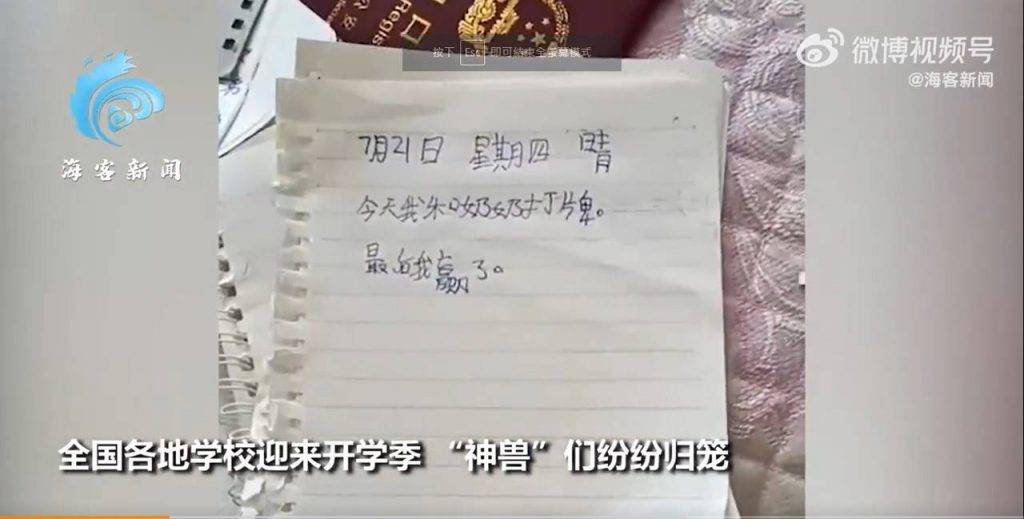 Regis
按下 Esc 即可结束全屏模式
微博视频号
@海客新闻
海客新闻
7月21日 星期四 晴
今天我和奶奶打牌。
最后我赢了。
全国各地学校迎来开学季 “神兽”们纷纷归笼